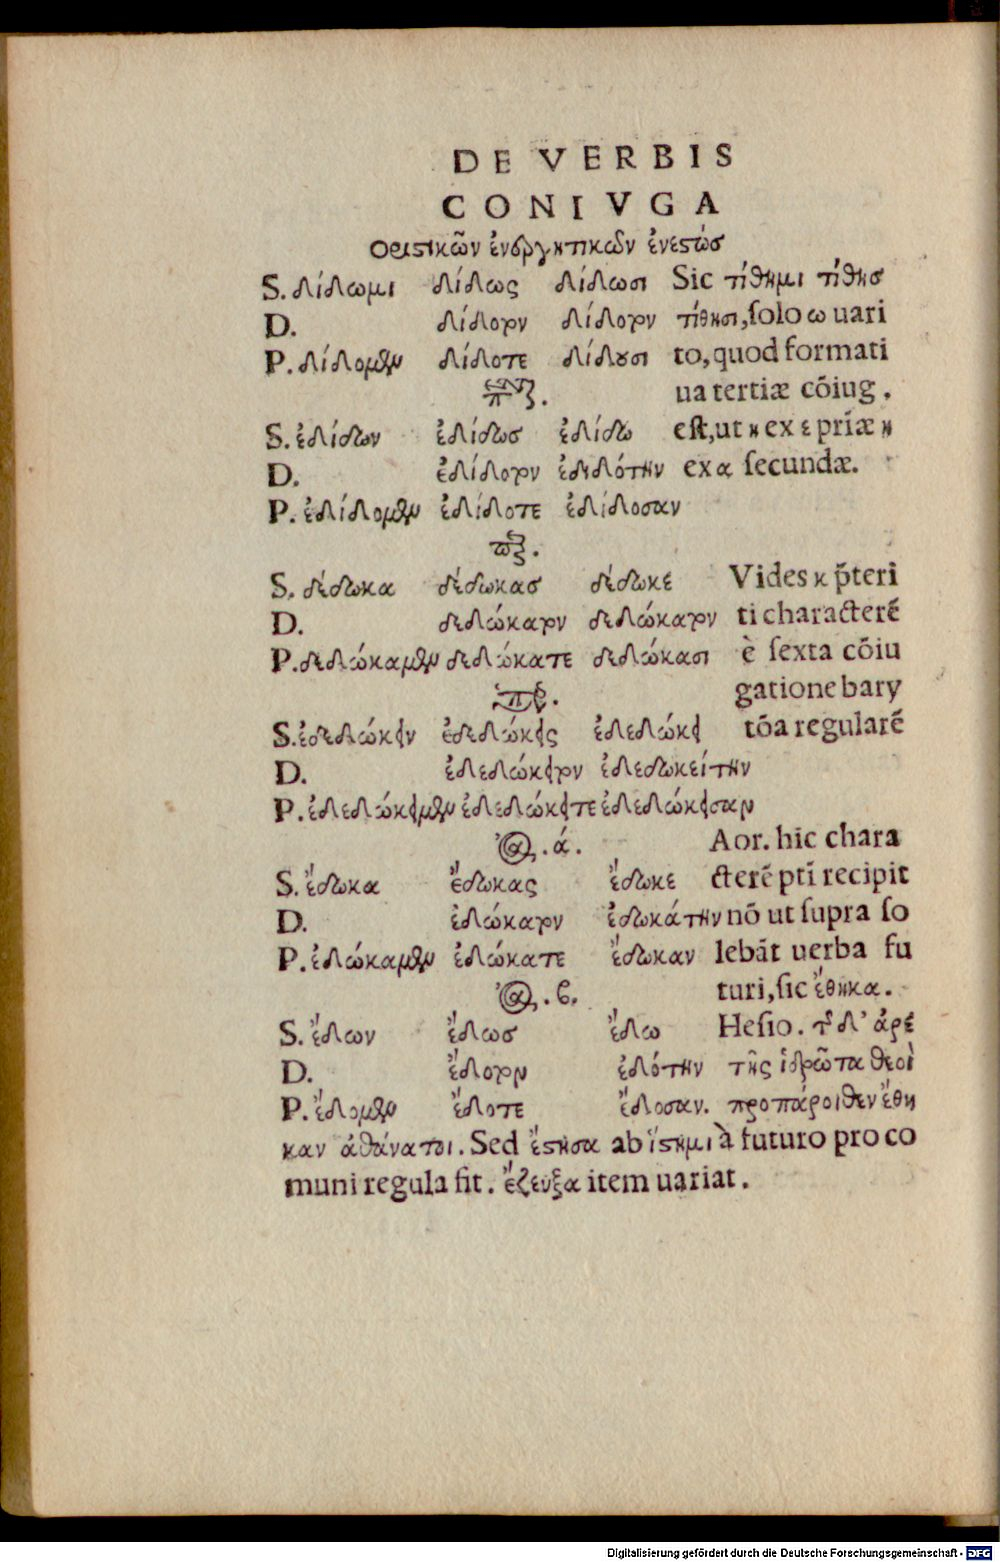 DE VERBIS
CONIVGA
Οριστικῶν ἐνεργητικῶν ἐνεστώσ
S. δίδωμι δίδως δίδωσι Sic τίθημι τίθησ
D. δίδοτον δίδοτον τίθησι, ſolo ω uari
P. δίδομεν δίδοτε δίδουσι to, quod formati
ua tertiæ cōiug.
S. ἐδίδων ἐδίδωσ ἐδίδω eſt, ut η ex ε priæ η
D. ἐδίδοτον ἐδιδότην ex α ſecundæ.
P. ἐδίδομεν ἐδίδοτε ἐδίδοσαν
S. δέδωκα δέδωκασ δέδωκέ Vides κ p̄teri
D. δεδώκατον δεδώκατον ti characterē
P. δεδώκαμεν δεδώκατε δεδώκασι è ſexta cōiu
gatione bary
S. ἐδεδώκειν ἐδεδώκεις ἐδεδώκει tōa regularē
D. ἐδεδώκειτον ἐδεδωκείτην
P. ἐδεδώκειμεν ἐδεδώκειτε ἐδεδώκεισαν
ά. Aor. hic chara
S. ἔδωκα ἔδωκας ἔδωκε cterē pti̅ recipit
D. ἐδώκατον ἐδωκάτην nō ut ſupra ſo
P. ἐδώκαμεν ἐδώκατε ἔδωκαν lebāt uerba fu
β. turi, ſic ἔθηκα.
S. ἔδων ἔδωσ ἔδω Heſio. τῆσ δ’ ἀρέ
D. ἔδοτον ἐδότην τῆς ἱδρῶτα θεοὶ
P. ἔδομεν ἔδοτε ἔδοσαν. προπάροιθεν ἔθη
καν ἀθάνατοι. Sed ἔστησα ab ἵστημι à futuro pro co
muni regula fit. ἔζευξα item uariat.
Digitalisierung gefördert durch die Deutsche Forschungsgemeinschaft - DFG